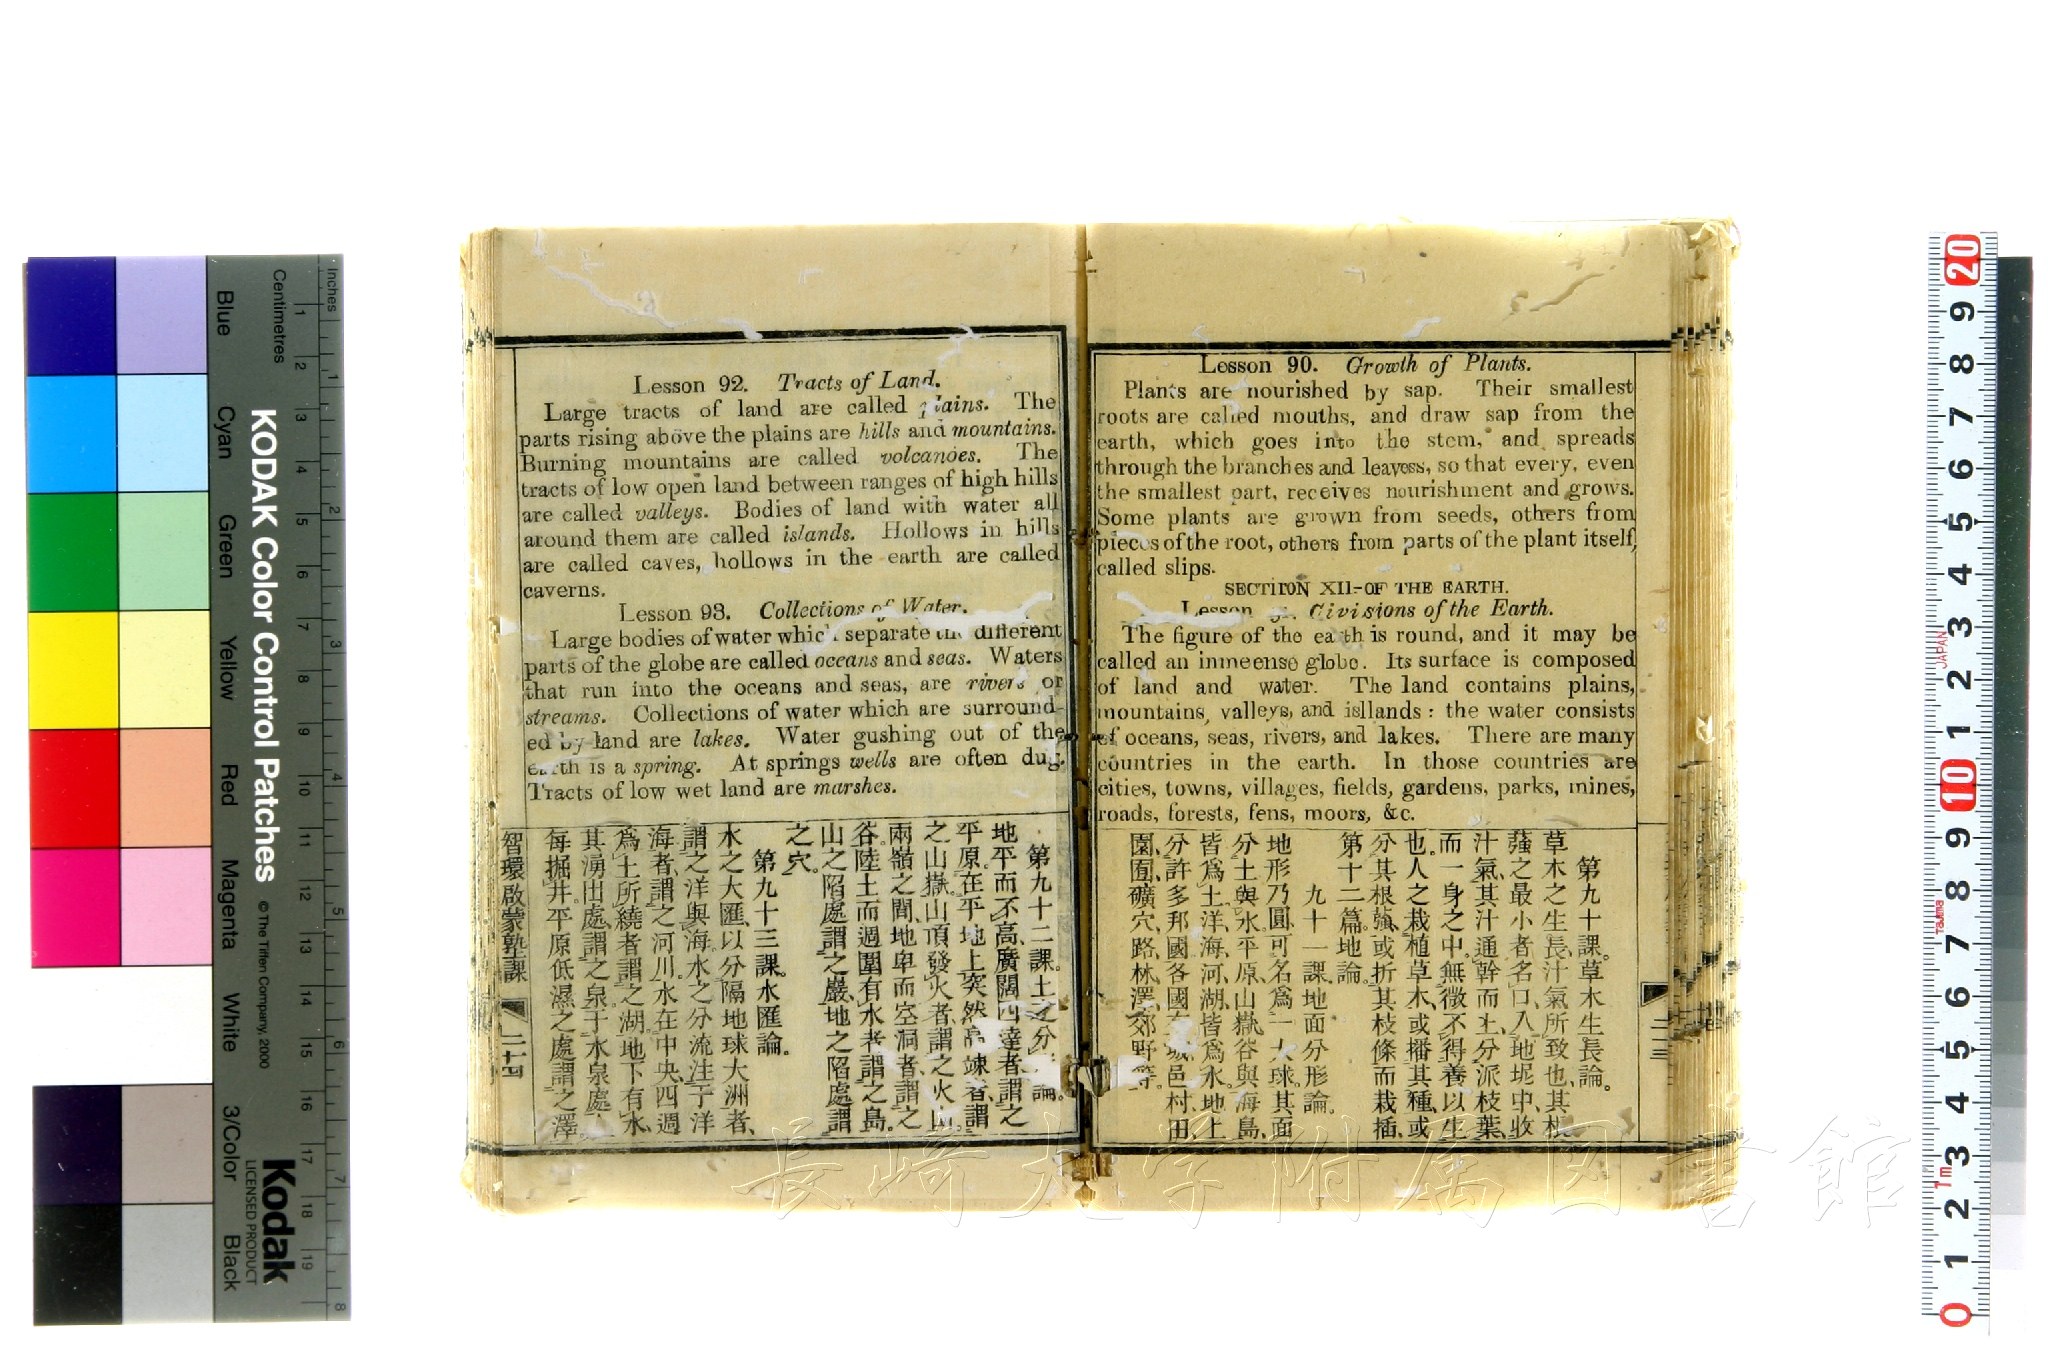 Lesson 90. Growth of Plants.
Plants are nourished by sap. Their smallest
roots are called mouths, and draw sap from the
earth, which goes into the stem, and spreads
through the branches and leavess, so that every, even
the smallest part, receives nourishment and grows.
Some plants are grown from seeds, others from
pieces of the root, others from parts of the plant itself,
called slips.
SECTIION XII-OF THE EARTH.
Lesson Civisions of the Earth.
The figure of the earth is round, and it may be
called an inmeense globe. Its surface is composed
of land and water. The land contains plains,
mountains, valleys, and isllands: the water consists
of oceans, seas, rivers, and lakes. There are many
countries in the earth. In those countries are
cities, towns, villages, fields, gardens, parks, mines,
roads, forests, fens, moors, &c.
第九十課。草木生長論。
草木之生長、汁氣所致也、其根
蕦之最小者名口、入地坭中、收
汁氣、其汁通幹而上、分派枝葉、
而一身之中。無微不得養以生
也。人之栽植草木、或播其種、或
分其根蕦、或折其枝條而栽插、
第十二篇。地論。
九十一課地面分形論。
地形乃圓、可名爲一大球。其面
分土與水。平原山嶽谷與海島、
皆爲土、洋、海、河、湖、皆爲水。地上
分許多邦國各國城邑村、田、
園、囿、礦穴、路、林、澤、郊野等。
二十三
Lesson 92. Tracts of Land.
Large tracts of land are called plains. The
parts rising above the plains are hills and mountains.
Burning mountains are called volcanoes. The
tracts of low open land between ranges of high hills
are called valleys. Bodies of land with water all
around them are called islands. Hollows in hills
are called caves, hollows in the earth are called
caverns.
Lesson 93. Collections of Water.
Large bodies of water which separate the different
parts of the globe are called oceans and seas. Waters
that run into the oceans and seas, are rivers or
streams. Collections of water which are surround-
ed by land are lakes. Water gushing out of the
earth is a spring. At springs wells are often dug.
Tracts of low wet land are marshes.
第九十二課。土之分論。
地平而不高、廣闊四達者、謂之
平原。在平地上突然高竦者、謂
之山嶽。山頂發火者謂之火山。
兩嶺之間、地卑而空洞者、謂之
谷。陸土而週圍有水者、謂之島。
山之陷處、謂之巖、地之陷處謂
之穴。
第九十三課。水匯論。
水之大匯、以分隔地球大洲者、
謂之洋與海。水之分流注于洋
海者、謂之河川。水在中央、四週
爲土所繞者、謂之湖。地下有水、
其湧出處、謂之泉。于水泉處、
每掘井。平原低濕之處、謂之澤
智環啟蒙塾課
二十四
KODAK Color Control Patches
© The Tiffen Company, 2000
Kodak
LICENSED PRODUCT
Inches
Centimetres
Blue
Cyan
Green
Yellow
Red
Magenta
White
3/Color
Black
1 2 3 4 5 6 7 8 9 10 11 12 13 14 15 16 17 18 19
1 2 3 4 5 6 7 8
20 9 8 7 6 5 4 3 2 1 10 9 8 7 6 5 4 3 2 1 0
JAPAN
Tajima
1m
長崎大学附属図書館